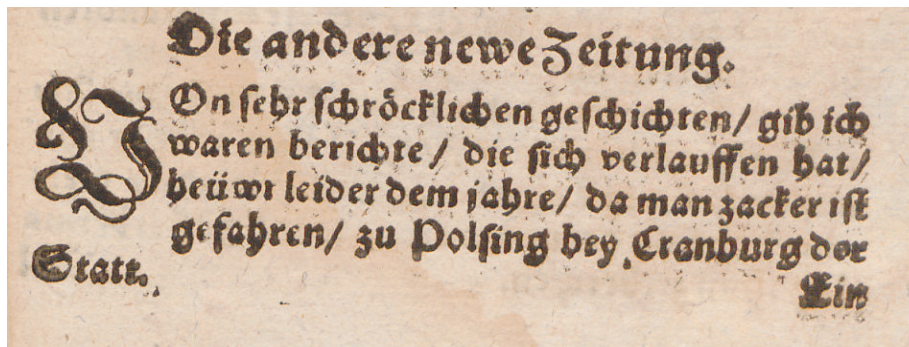 Die andere newe Zeitung.
VOn sehr schröcklichen geschichten/ gib ich
waren berichte/ die sich verlauffen hat/
heüwr leider dem jahre/ da man zacker ist
gefahren/ zu Polsing bey Cranburg der
Statt.
Ein